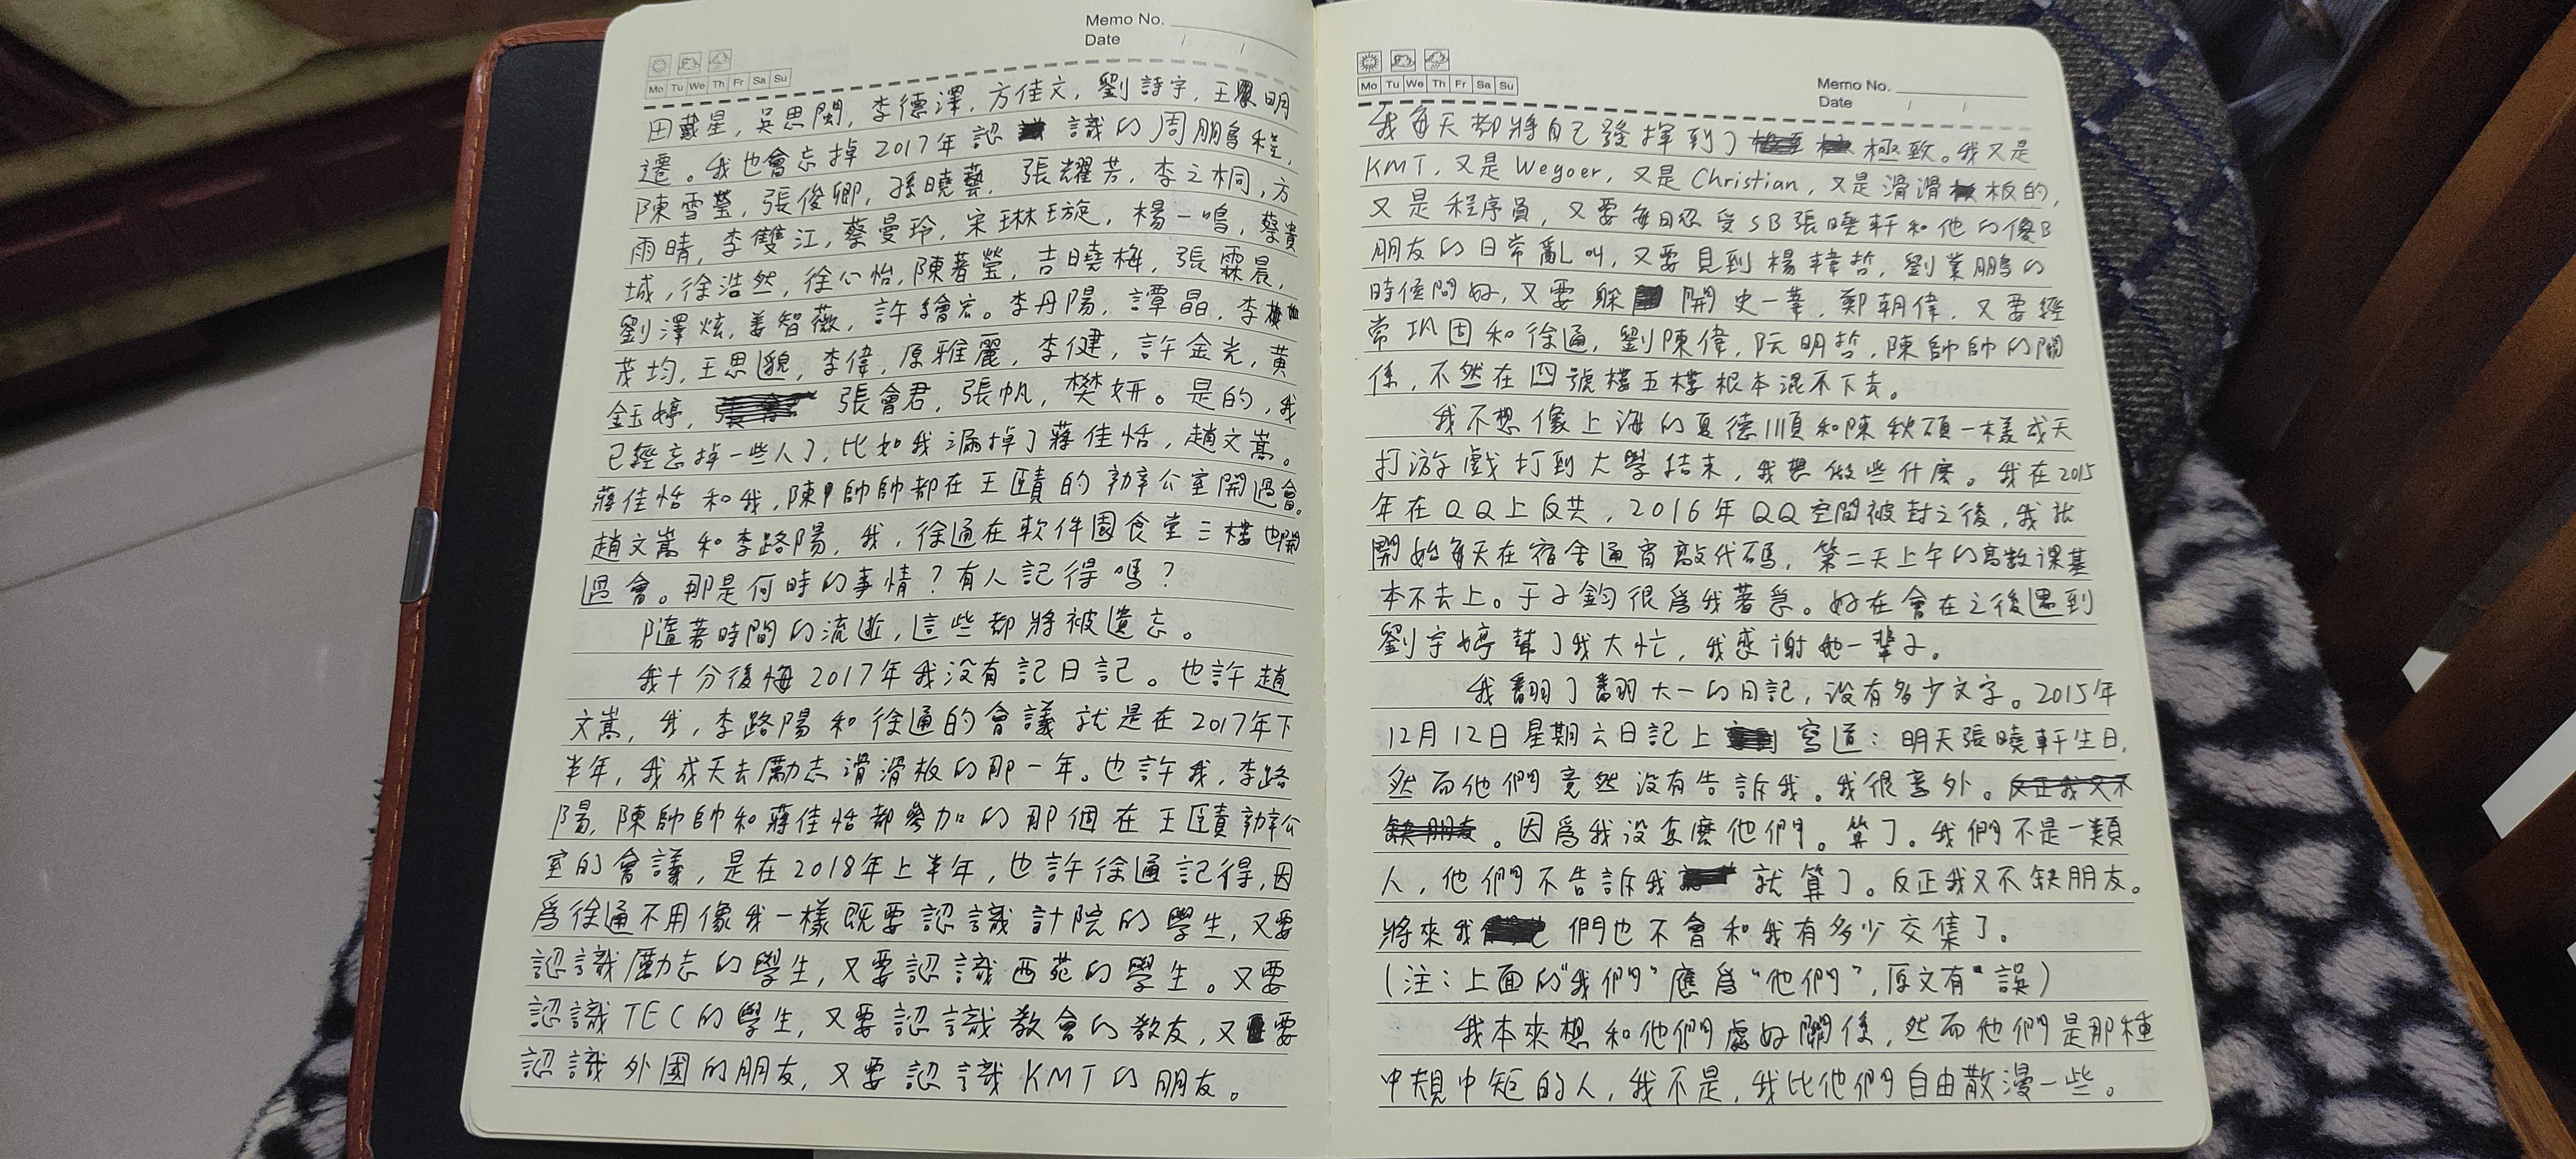 Memo No.
Date / /
Mo Tu We Th Fr Sa Su
田戴星，吳思閩，李德澤，方佳文，劉詩宇，王 明
遷。我也會忘掉2017年認 識的周鵬程，
陳雪瑩，張俊卿，孫曉藝，張耀芳，李之桐，方
雨晴，李雙江，蔡曼玲，宋琳璇，楊一鳴，蔡貴
城，徐浩然，徐心怡，陳著瑩，吉曉梅，張霖晨，
劉澤炫，姜智薇，許繪宏。李丹陽，譚晶，李
茂均，王思邈，李偉，原雅麗，李健，許金光，黃
鈺婷， 張會君，張帆，樊妍。是的，我
已經忘掉一些人了，比如我漏掉了蔣佳恬，趙文嵩。
蔣佳恬和我，陳帥帥都在王賾的辦公室開過會。
趙文嵩和李路陽，我，徐通在軟件園食堂三樓也開
過會。那是何時的事情？有人記得嗎？
隨著時間的流逝，這些都將被遺忘。
我十分後悔2017年我没有記日記。也許趙
文嵩，我，李路陽和徐通的會議就是在2017年下
半年，我成天去勵志滑滑板的那一年。也許我，李路
陽，陳帥帥和蔣佳恬都參加的那個在王賾辦公
室的會議，是在2018年上半年，也許徐通記得，因
爲徐通不用像我一樣既要認識計院的學生，又要
認識勵志的學生，又要認識西苑的學生。又要
認識TEC的學生，又要認識教會的教友，又要
認識外國的朋友，又要認識KMT的朋友。
Mo Tu We Th Fr Sa Su
Memo No.
Date / /
我每天都將自己發揮到了 極致。我又是
KMT，又是Wegoer，又是Christian，又是滑滑板的，
又是程序員，又要每日忍受SB張曉軒和他的傻B
朋友的日常亂叫，又要見到楊偉哲，劉業鵬的
時候問好，又要躲 開史一葦，鄭朝偉，又要經
常巩固和徐通，劉陳偉，阮明哲，陳帥帥的關
係，不然在四號樓五樓根本混不下去。
我不想像上海的夏德順和陳秋碩一樣成天
打游戲打到大學結束，我想做些什麽。我在2015
年在QQ上反共，2016年QQ空間被封之後，我就
開始每天在宿舍通宵敲代碼，第二天上午的高数課基
本不去上。于子鈞很爲我著急。好在會在之後遇到
劉宇婷幫了我大忙，我感谢她一輩子。
我翻了翻大一的日記，没有多少文字。2015年
12月12日星期六日記上 寫道：明天張曉軒生日，
然而他們竟然没有告訴我。我很意外。反正我又不
缺朋友。因爲我没怎麽他們。算了。我們不是一類
人，他們不告訴我 就算了。反正我又不缺朋友。
將來我 們也不會和我有多少交集了。
（注：上面的“我們”應爲“他們”，原文有誤）
我本來想和他們處好關係，然而他們是那種
中規中矩的人，我不是，我比他們自由散漫一些。